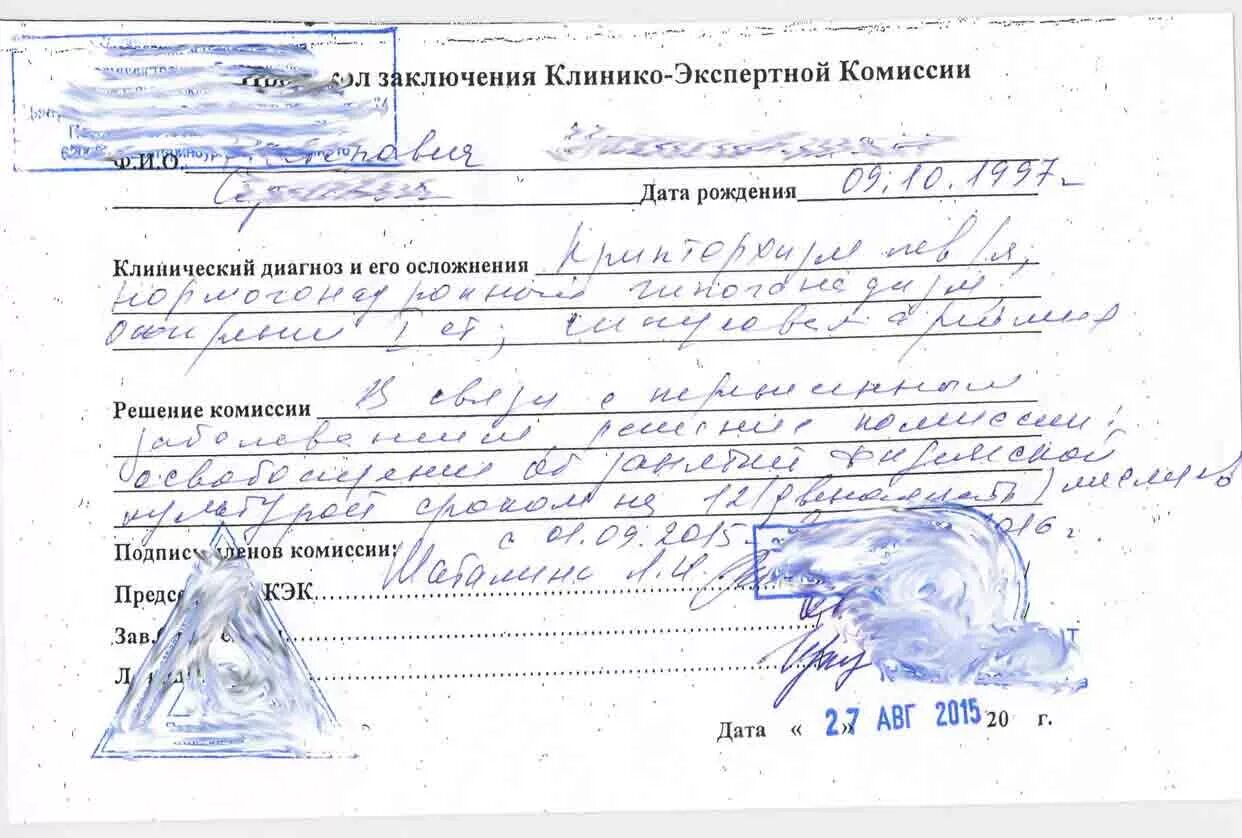 кол заключения Клинико-Экспертной Комиссии
Ф.И.О.
Дата рождения 09.10.1997г
Клинический диагноз и его осложнения Крипторхизм левый,
нормогонадронный гипогонадизм,
ожирение I ст; синусовая аритмия
Решение комиссии В связи с
заболеванием, решение комиссии:
освобождение от занятий физической
культурой сроком на 12 (двенадцать) месяцев
с 01.09.2015 2016 г.
Подписи членов комиссии:
КЭК Шаталина Л.И.
Зав.
Дата « 27 » АВГ 2015 20 г.